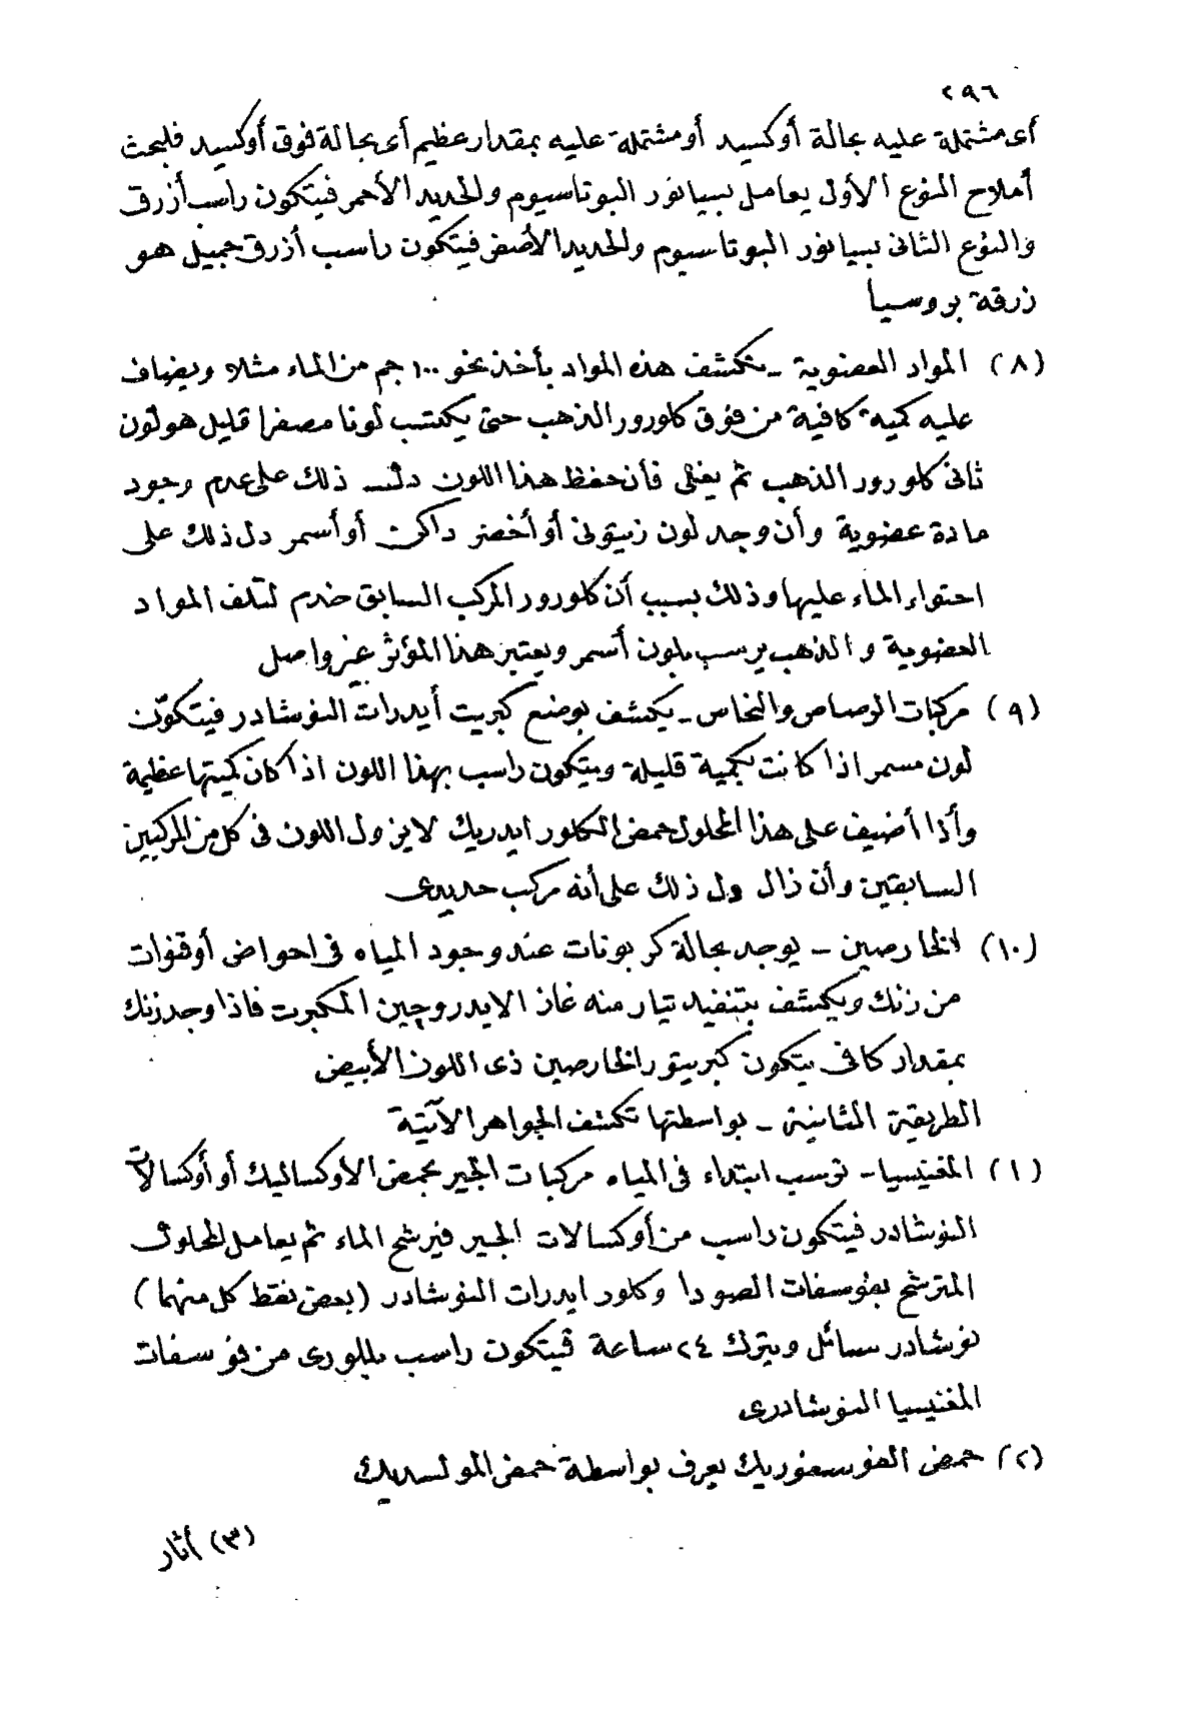 ٢٩٦
أى مشتملة عليه بحالة أوكسيد أو مشتملة عليه بمقدار عظيم أى بحالة فوق أوكسيد فلبحث
أملاح النوع الأول يعامل بسيانور البوتاسيوم والحديد الأحمر فيتكون راسب أزرق
والنوع الثانى بسيانور البوتاسيوم والحديد الأصفر فيتكون راسب أزرق جميل هو
زرقة بروسيا
(٨) المواد العضوية – تكشف هذه المواد بأخذ نحو ١٠٠ جم من الماء مثلا ويضاف
عليه كمية كافية من فوق كلورور الذهب حتى يكتسب لونا مصفرا قليل هو لون
ثانى كلورور الذهب ثم يغلى فأن حفظ هذا اللون دل ذلك على عدم وجود
مادة عضوية وأن وجد لون زيتونى أو أخضر داكن أو أسمر دل ذلك على
احتواء الماء عليها وذلك بسبب أن كلورور المركب السابق خدم لتلف المواد
العضوية والذهب يرسب بلون أسمر ويعتبر هذا المؤثر غير واصل
(٩) مركبات الرصاص والنحاس – يكشف بوضع كبريت أيدرات النوشادر فيتكون
لون مسمر اذا كانت بكمية قليلة ويتكون راسب بهذا اللون اذا كان كميتها عظيمة
وأذا أضيف على هذا المحلول حمض الكلور ايدريك لا يزول اللون فى كل من المركبين
السابقين وأن زال دل ذلك على أنه مركب حديدى
(١٠) الخارصين – يوجد بحالة كربونات عند وجود المياه فى احواض أو قنوات
من زنك ويكشف بتنفيد تيار منه غاز الايدروچين المكبرت فاذا وجد زنك
بمقدار كافى يتكون كبريتور الخارصين ذى اللون الأبيض
الطريقة الثانية – بواسطتها تكشف الجواهر الآتية
(١) المغنيسيا – ترسب ابتداء فى المياه مركبات الجير بحمض الأوكساليك أو أوكسالات
النوشادر فيتكون راسب من أوكسالات الجير فيرشح الماء ثم يعامل المحلول
المترشح بفوسفات الصودا وكلور ايدرات النوشادر (بعض نقط كل منهما)
نوشادر سائل ويترك ٢٤ ساعة فيتكون راسب بللورى من فوسفات
المغنيسيا النوشادرى
(٢) حمض الفوسفوريك يعرف بواسطة حمض المولبديك
(٣) أثار